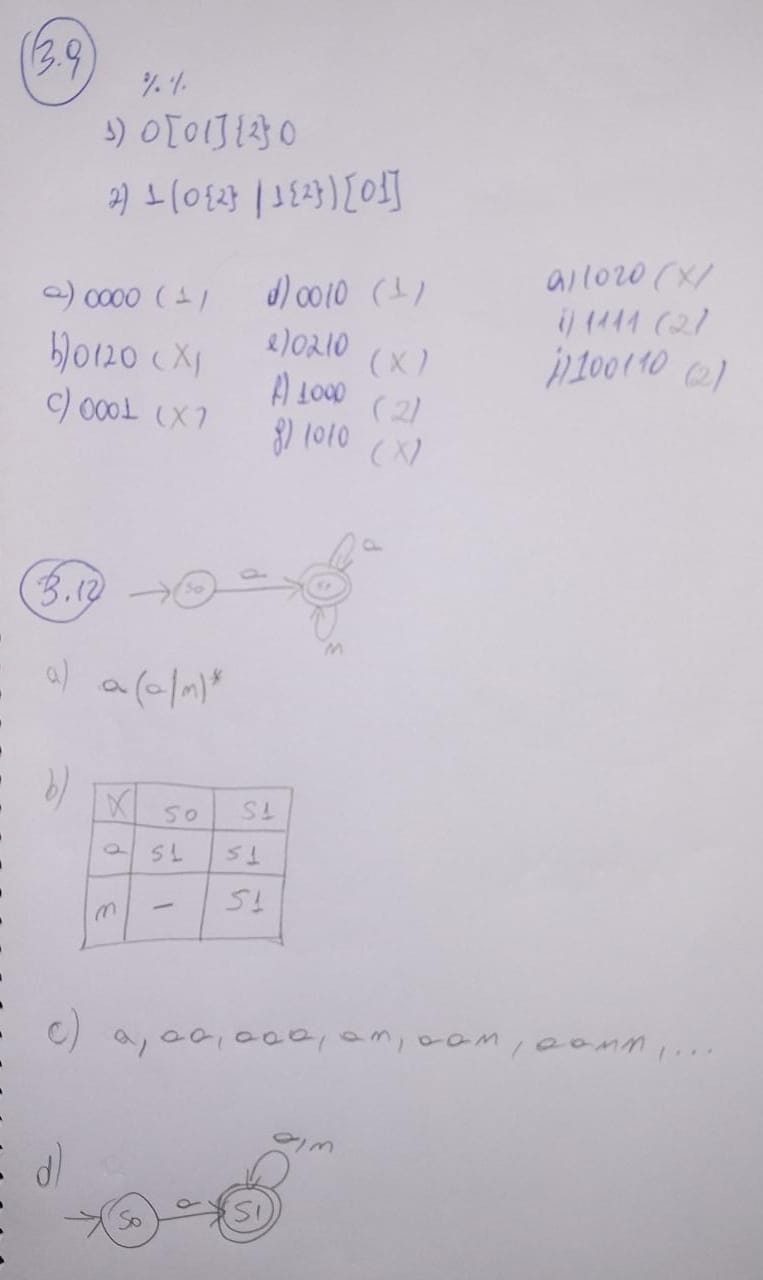 3.9
%%
1) 0[01]{2}0
2) 1(0{2} | 1{2})[01]
a) 0000 (1)
b) 0120 (X)
c) 0001 (X)
d) 0010 (1)
e) 0210 (X)
f) 1000 (2)
g) 1010 (X)
a) 1020 (X)
i) 1111 (2)
j) 100110 (2)
3.12
S0 a S1 a
n
a) a(a/n)*
b)
X S0 S1
a S1 S1
n - S1
c) a, aa, aaa, an, aan, aann, ...
d)
a,n
S0 a S1